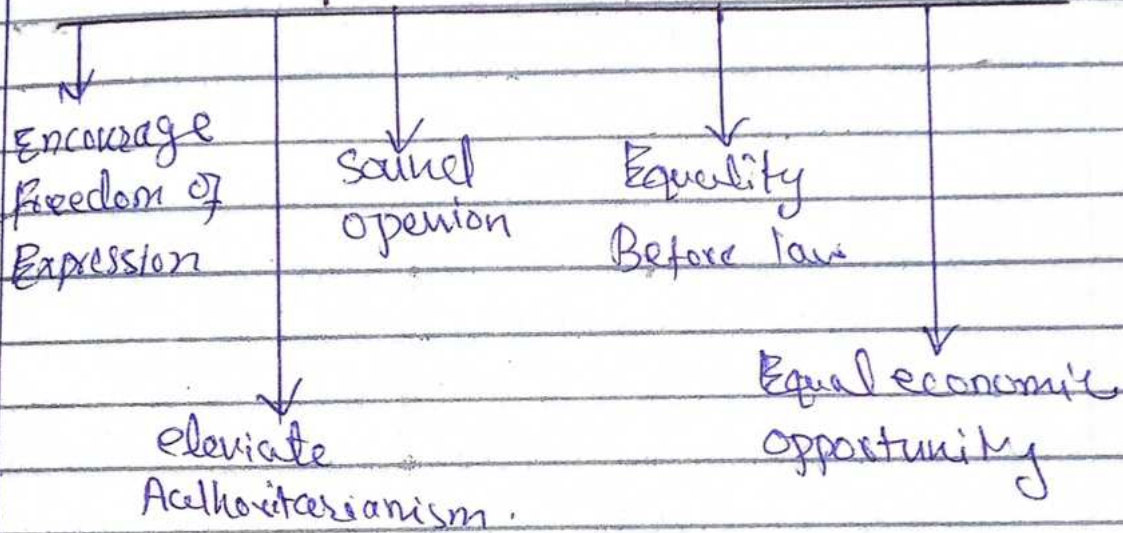 Encourage
Freedom of
Expression
Sound
openion
Equality
Before law
eleviate
Authoritarianism.
Equal economic
opportunity